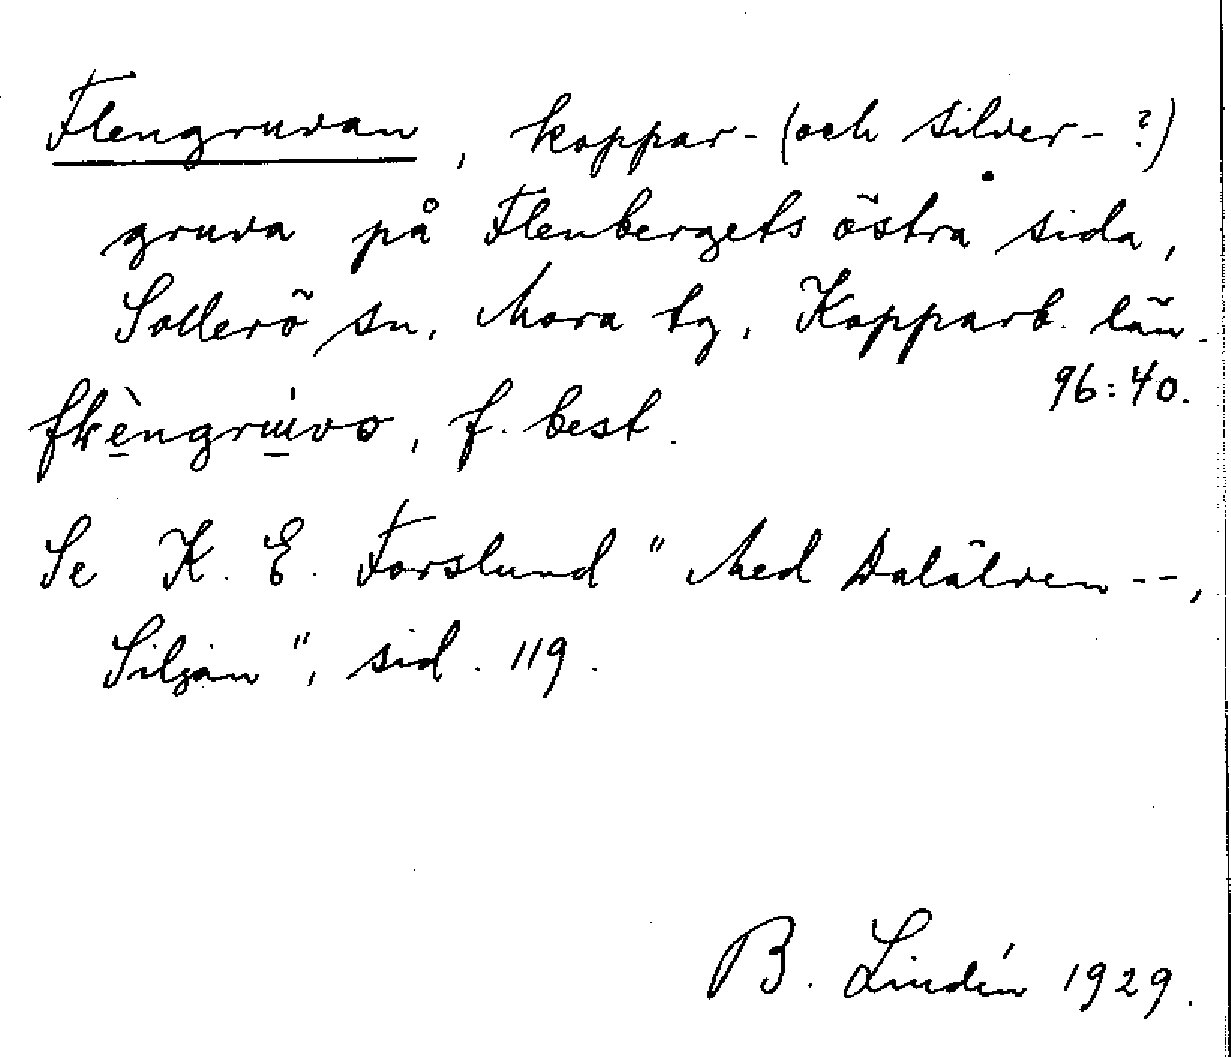 Flengruvan, koppar- (och silver- ?)
gruva på Flenbergets östra sida,
Sollerö sn, Mora tg, Kopparb. län.
96:40.
, f. best.
Se K. E. Forslund "Med Dalälven --,
Siljan", sid. 119.
B. Lindén 1929.